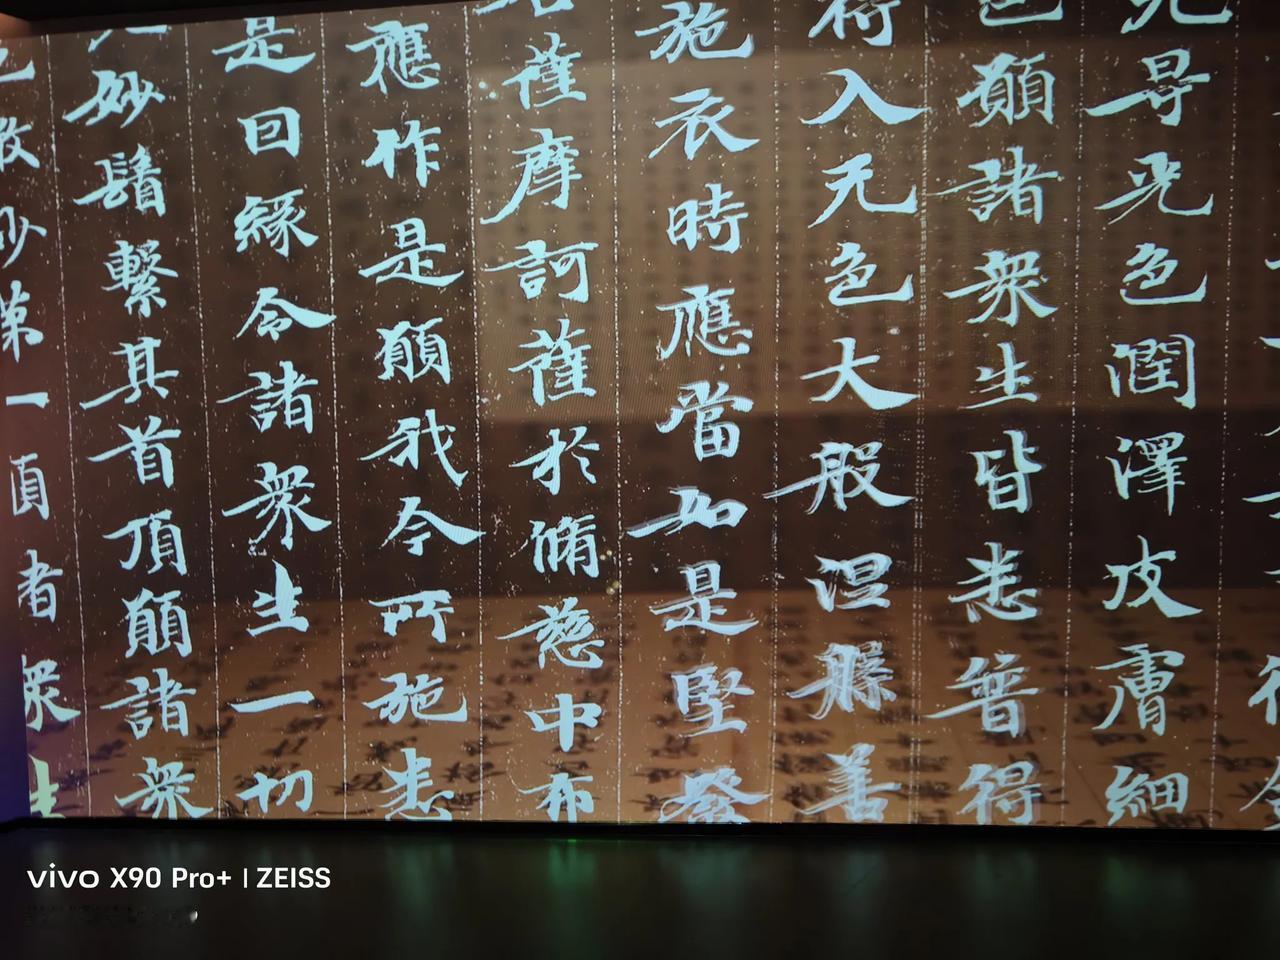 㝵光色潤澤皮膚細
色願諸衆生皆悉普得
入无色大般涅槃善
施衣時應當如是堅發
薩摩訶薩於脩慈中布
應作是願我今所施悉
是回緣令諸衆生一切
妙鬘繫其首頂願諸衆
妙第一
者衆生
vivo X90 Pro+ | ZEISS